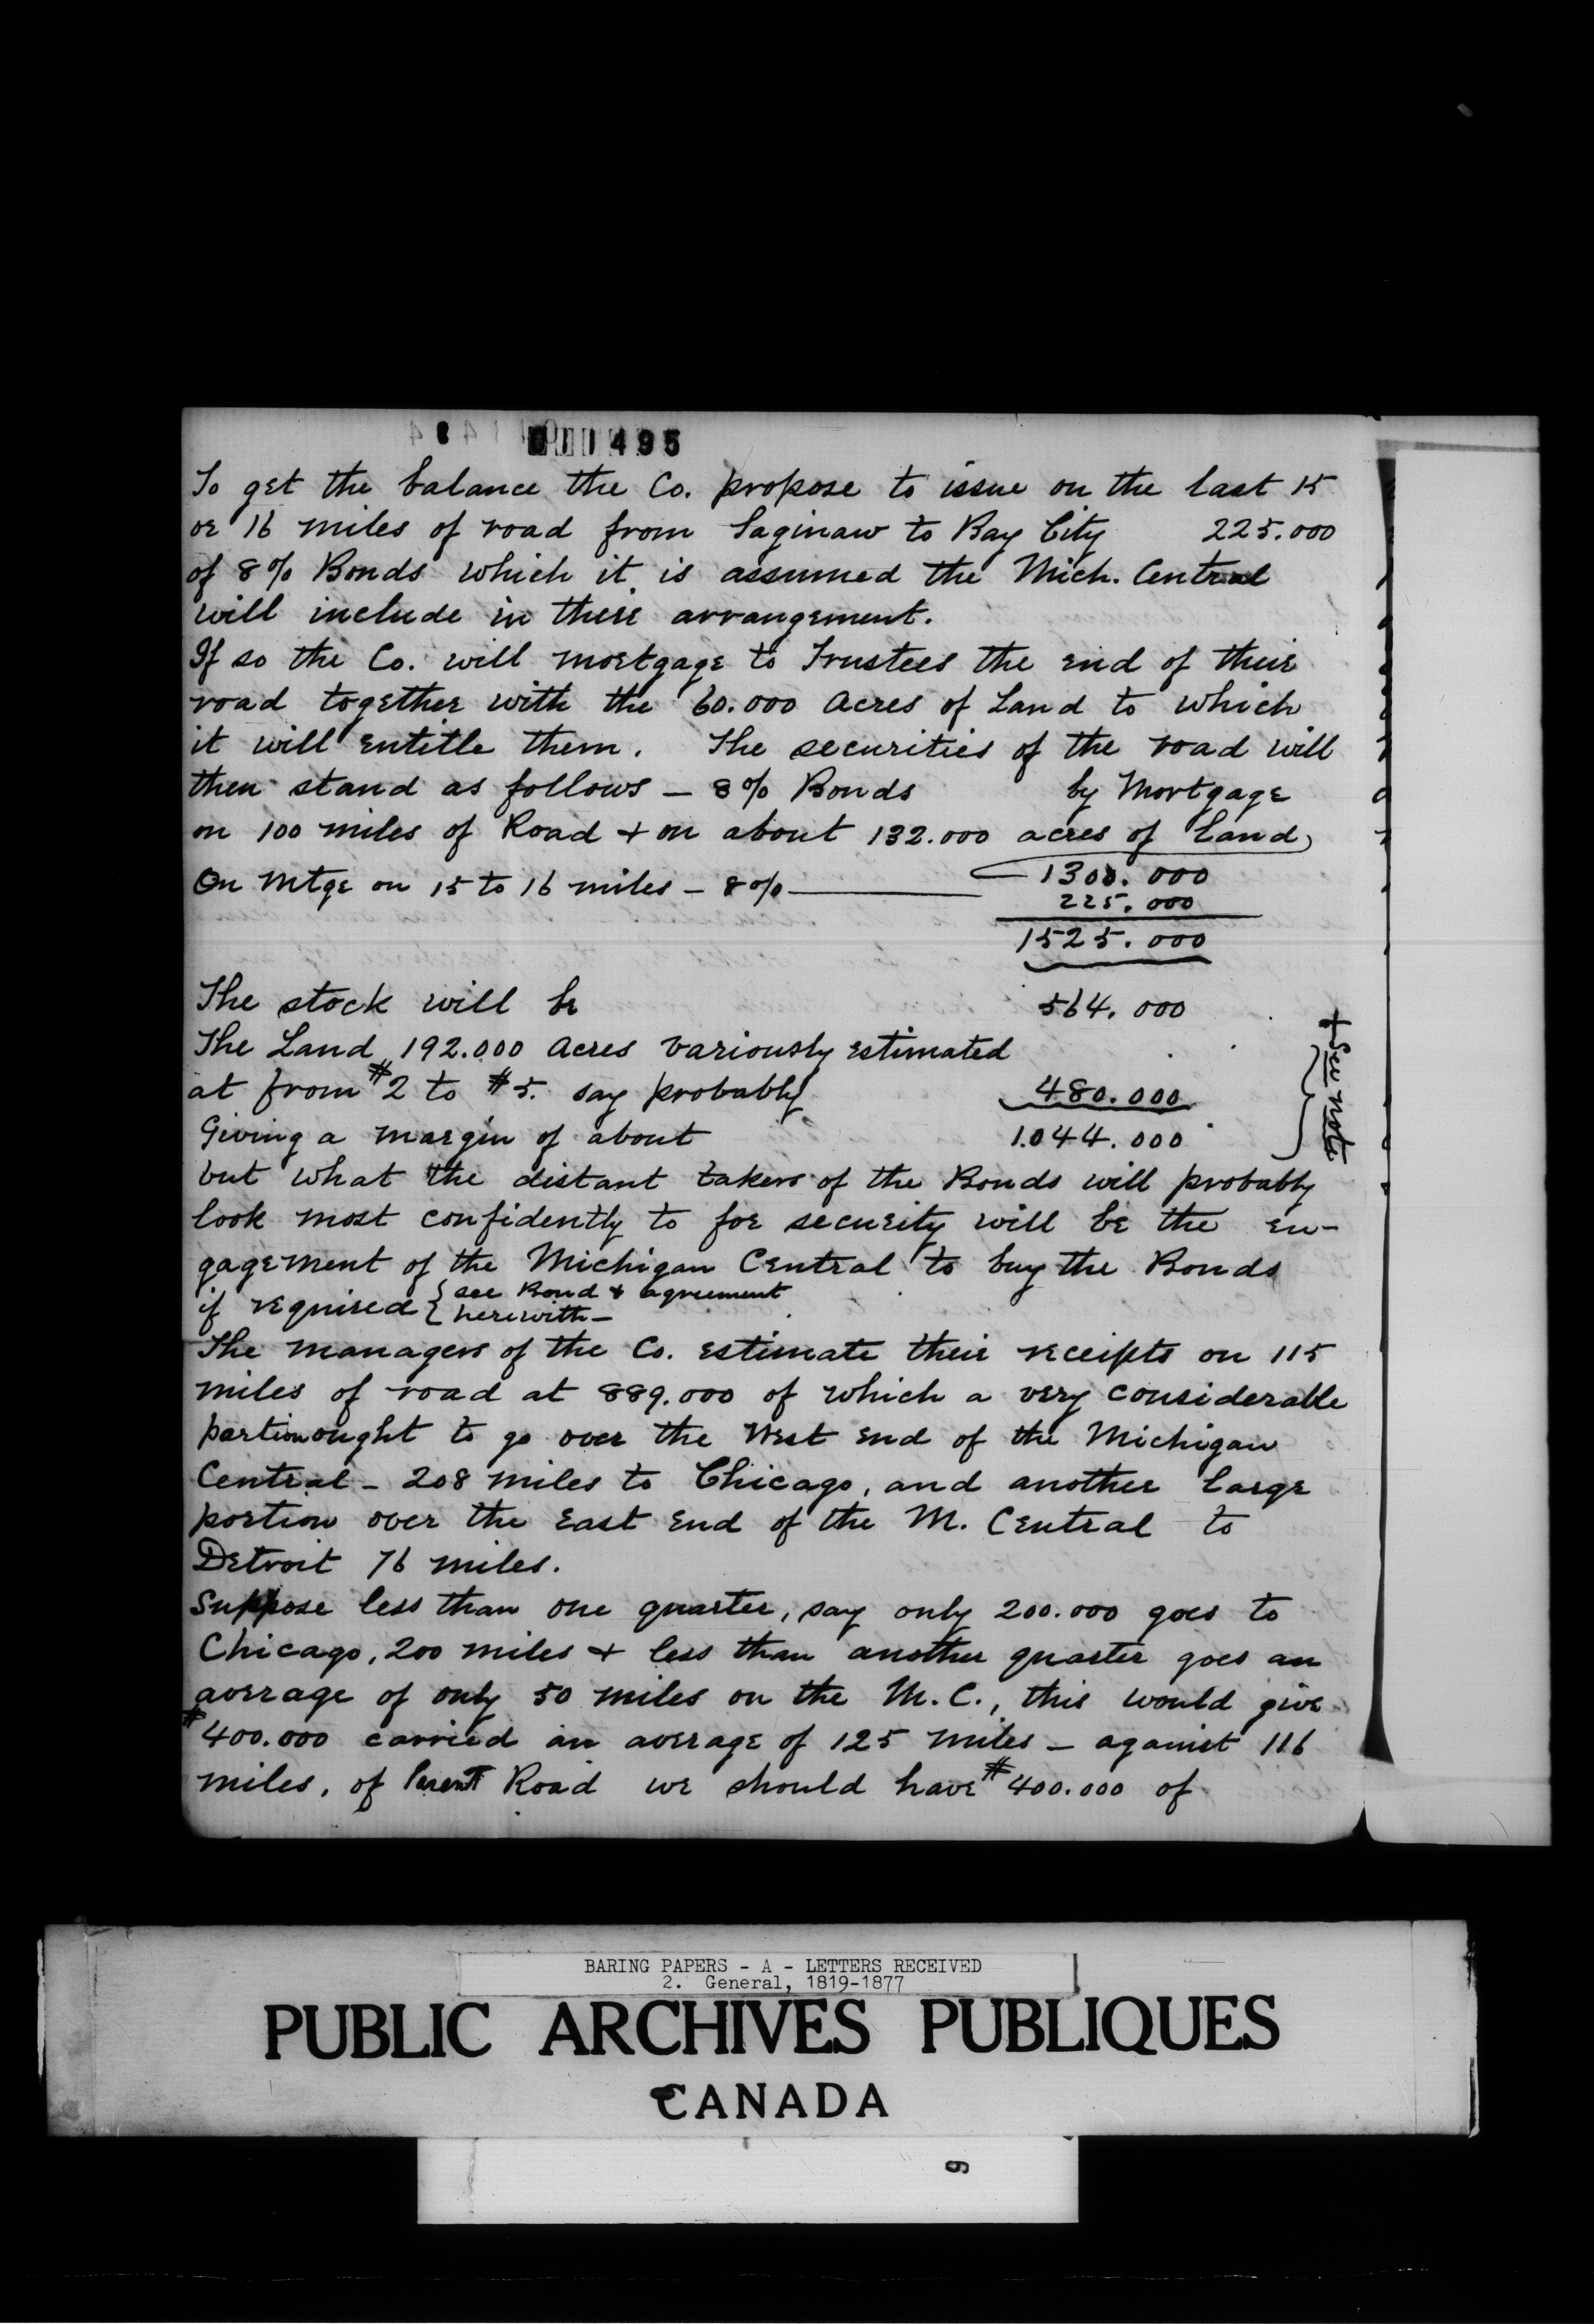 011495
To get the balance the Co. propose to issue on the last 15
or 16 miles of road from Saginaw to Bay City 225.000
of 8% Bonds which it is assumed the Mich. Central
will include in their arrangement.
If so the Co. will mortgage to Trustees the end of their
road together with the 60.000 Acres of Land to which
it will entitle them. The securities of the road will
then stand as follows — 8% Bonds by Mortgage
on 100 miles of Road + on about 132.000 acres of Land
1300.000
On Mtge on 15 to 16 miles — 8% — 225.000
1525.000
The stock will be 564.000
The Land, 192.000 Acres variously estimated
at from $2 to $5. say probably 480.000
Giving a margin of about 1.044.000
+ See note
but what the distant takers of the Bonds will probably
look most confidently to for security will be the en-
gagement of the Michigan Central to buy the Bonds
if required { see Bond & agreement
herewith —
The managers of the Co. estimate their receipts on 115
miles of road at 889.000 of which a very considerable
portion ought to go over the West end of the Michigan
Central — 208 miles to Chicago, and another large
portion over the East end of the M. Central to
Detroit 76 miles.
Suppose less than one quarter, say only 200.000 goes to
Chicago, 200 miles + less than another quarter goes an
average of only 50 miles on the M. C., this would give
$400.000 carried an average of 125 miles — against 116
miles, of Road we should have $400.000 of
BARING PAPERS - A - LETTERS RECEIVED
2. General, 1819-1877
PUBLIC ARCHIVES PUBLIQUES
CANADA
9